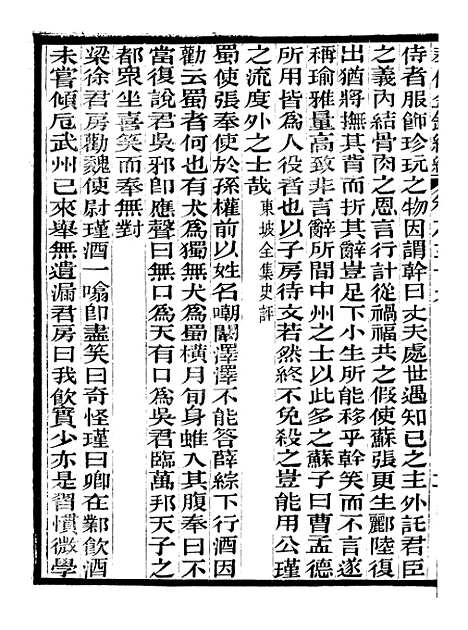 侍者服飾珍玩之物因謂幹曰丈夫處世遇知已之主外託君臣
之義內結骨肉之恩言行計從禍福共之假使蘇張更生酈陸復
出猶將撫其背而折其辭豈足下小生所能移乎幹笑而不言遂
稱瑜雅量高致非言辭所間中州之士以此多之蘇子曰曹孟德
所用皆爲人役者也以子房待文若然終不免殺之豈能用公瑾
之流度外之士哉 東坡全集史評
蜀使張奉使於孫權前以姓名嘲闞澤澤不能答薛綜下行酒因
勸云蜀者何也有犬爲獨無犬爲蜀橫月旬身入其腹奉曰不
當復說君吳邪即應聲曰無口爲天有口爲吳君臨萬邦天子之
都衆坐喜笑而奉無對
梁徐君房勸魏使尉瑾酒一噏即盡笑曰奇怪瑾曰卿在鄴飲酒
未嘗傾卮武州已來舉無遺漏君房曰我飲實少亦是習慣微學